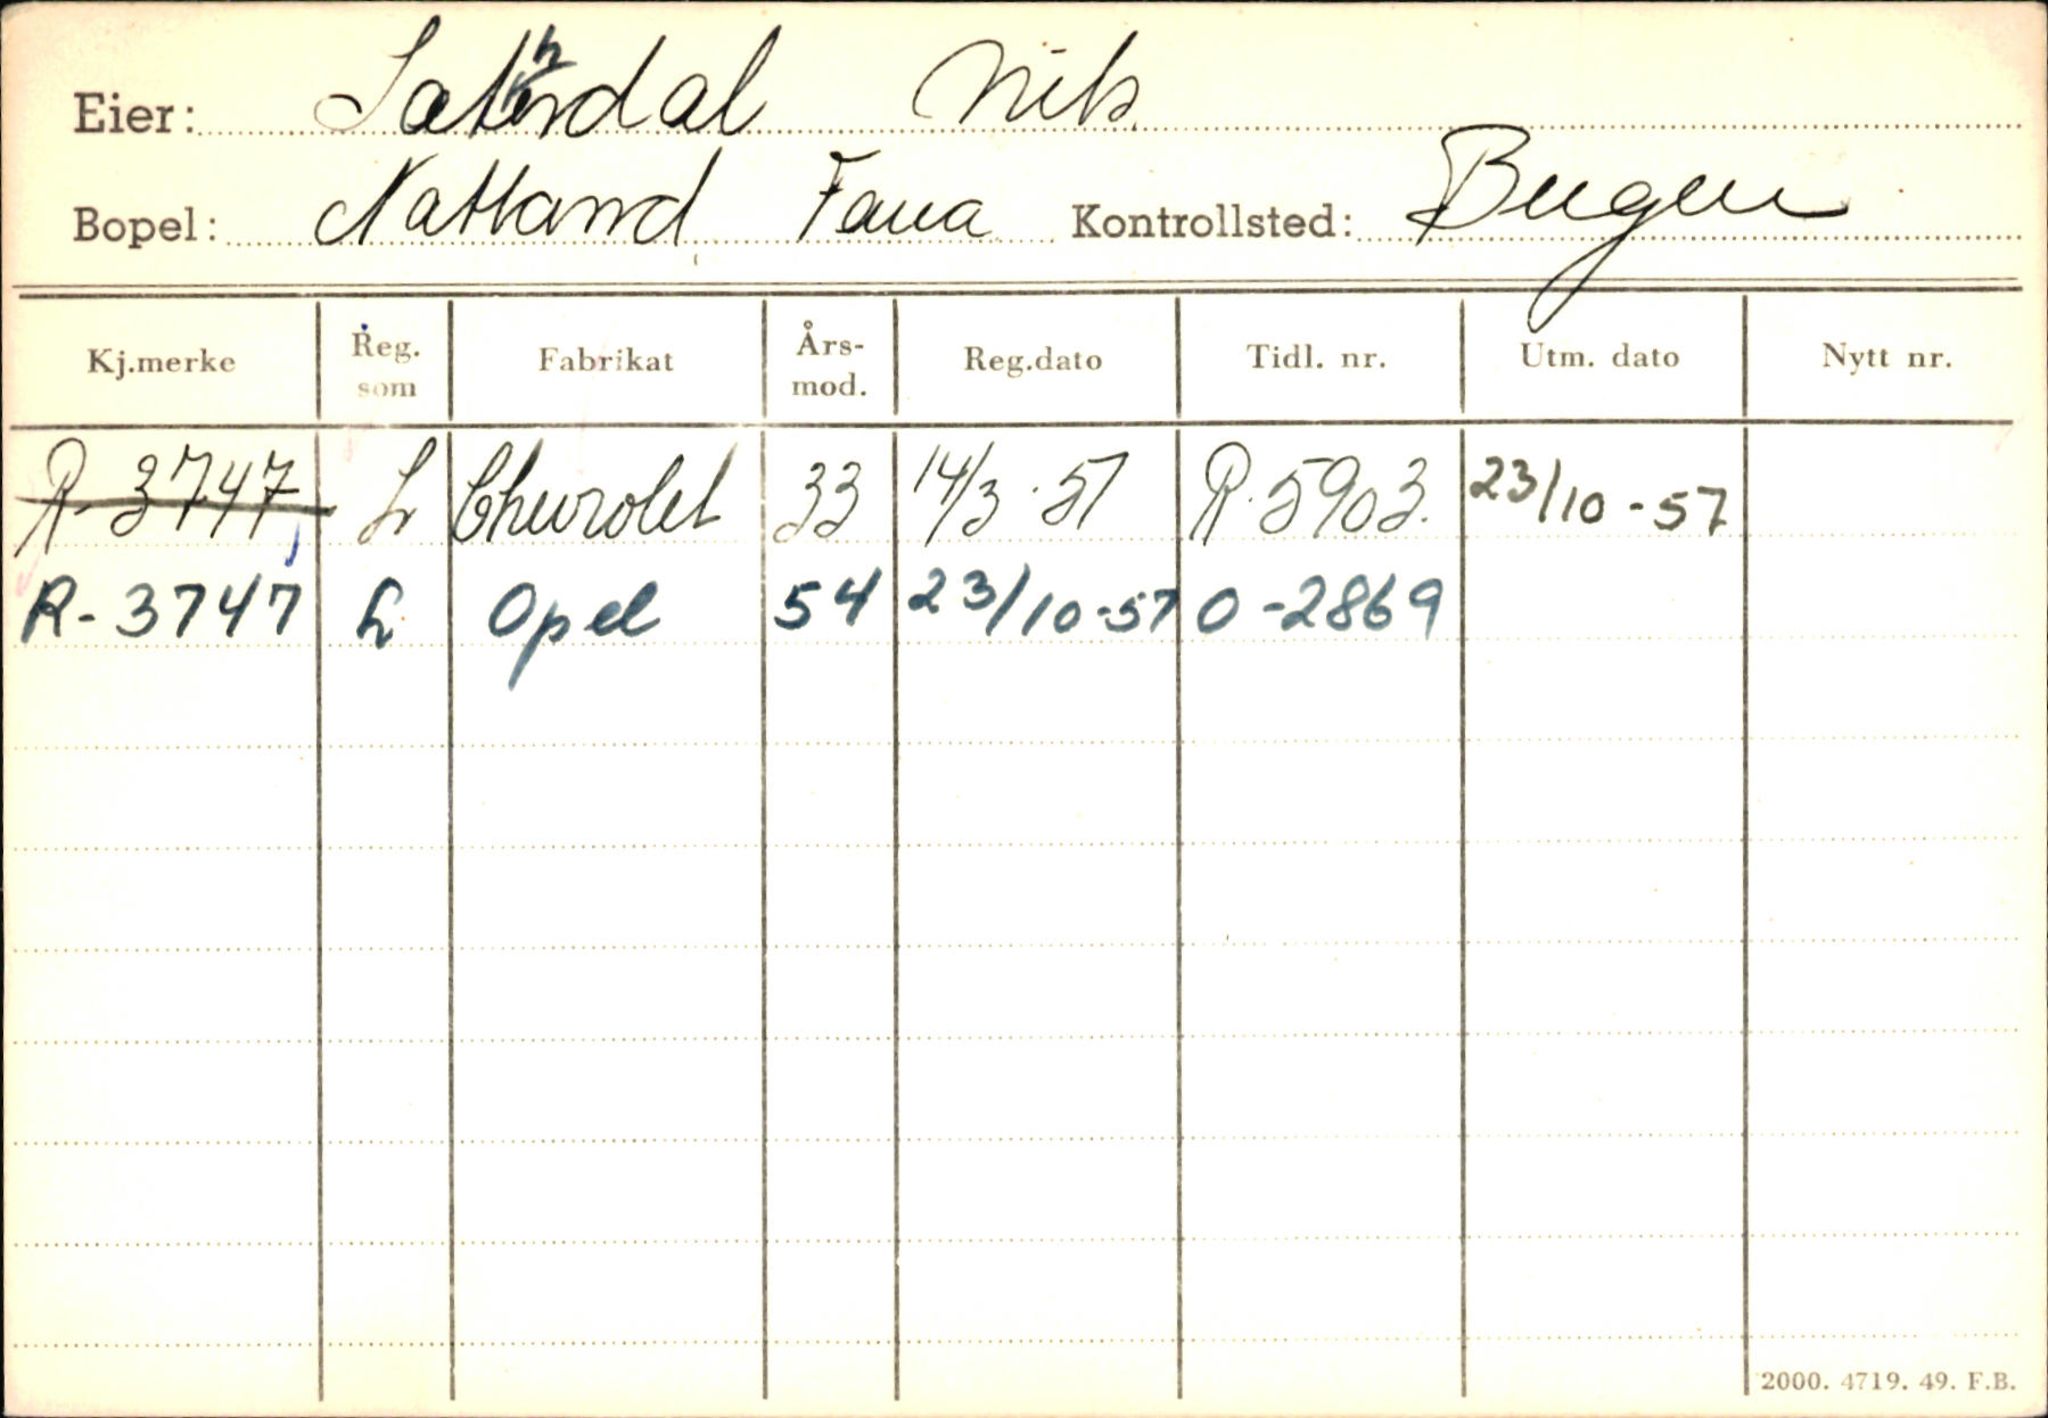 Eier: Sætendal Nils
Bopel: Natland Fana Kontrollsted: Bergen
Kj.merke Reg. som Fabrikat Års-mod. Reg.dato Tidl. nr. Utm. dato Nytt nr.
R-3747 L Chevrolet 33 14/3-51 R-5903. 23/10-57
R-3747 L Opel 54 23/10-57 O-2869
2000. 4719. 49. F.B.